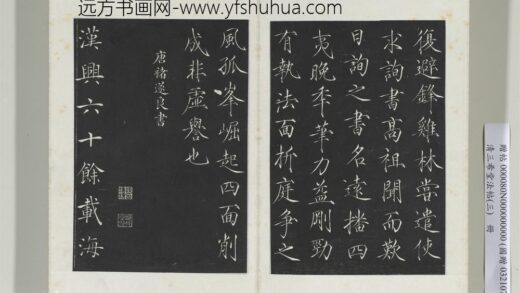 远方书画网- www.yfshuhua.com
復避鋒雞林嘗遣使
求詢書高祖聞而歎
曰詢之書名遠播四
夷晚年筆力益剛勁
有執法面折庭爭之
風孤峯崛起四面削
成非虛譽也
唐褚遂良書
漢興六十餘載海
贈帖 000080N000000000
清三希堂法帖(三) 冊